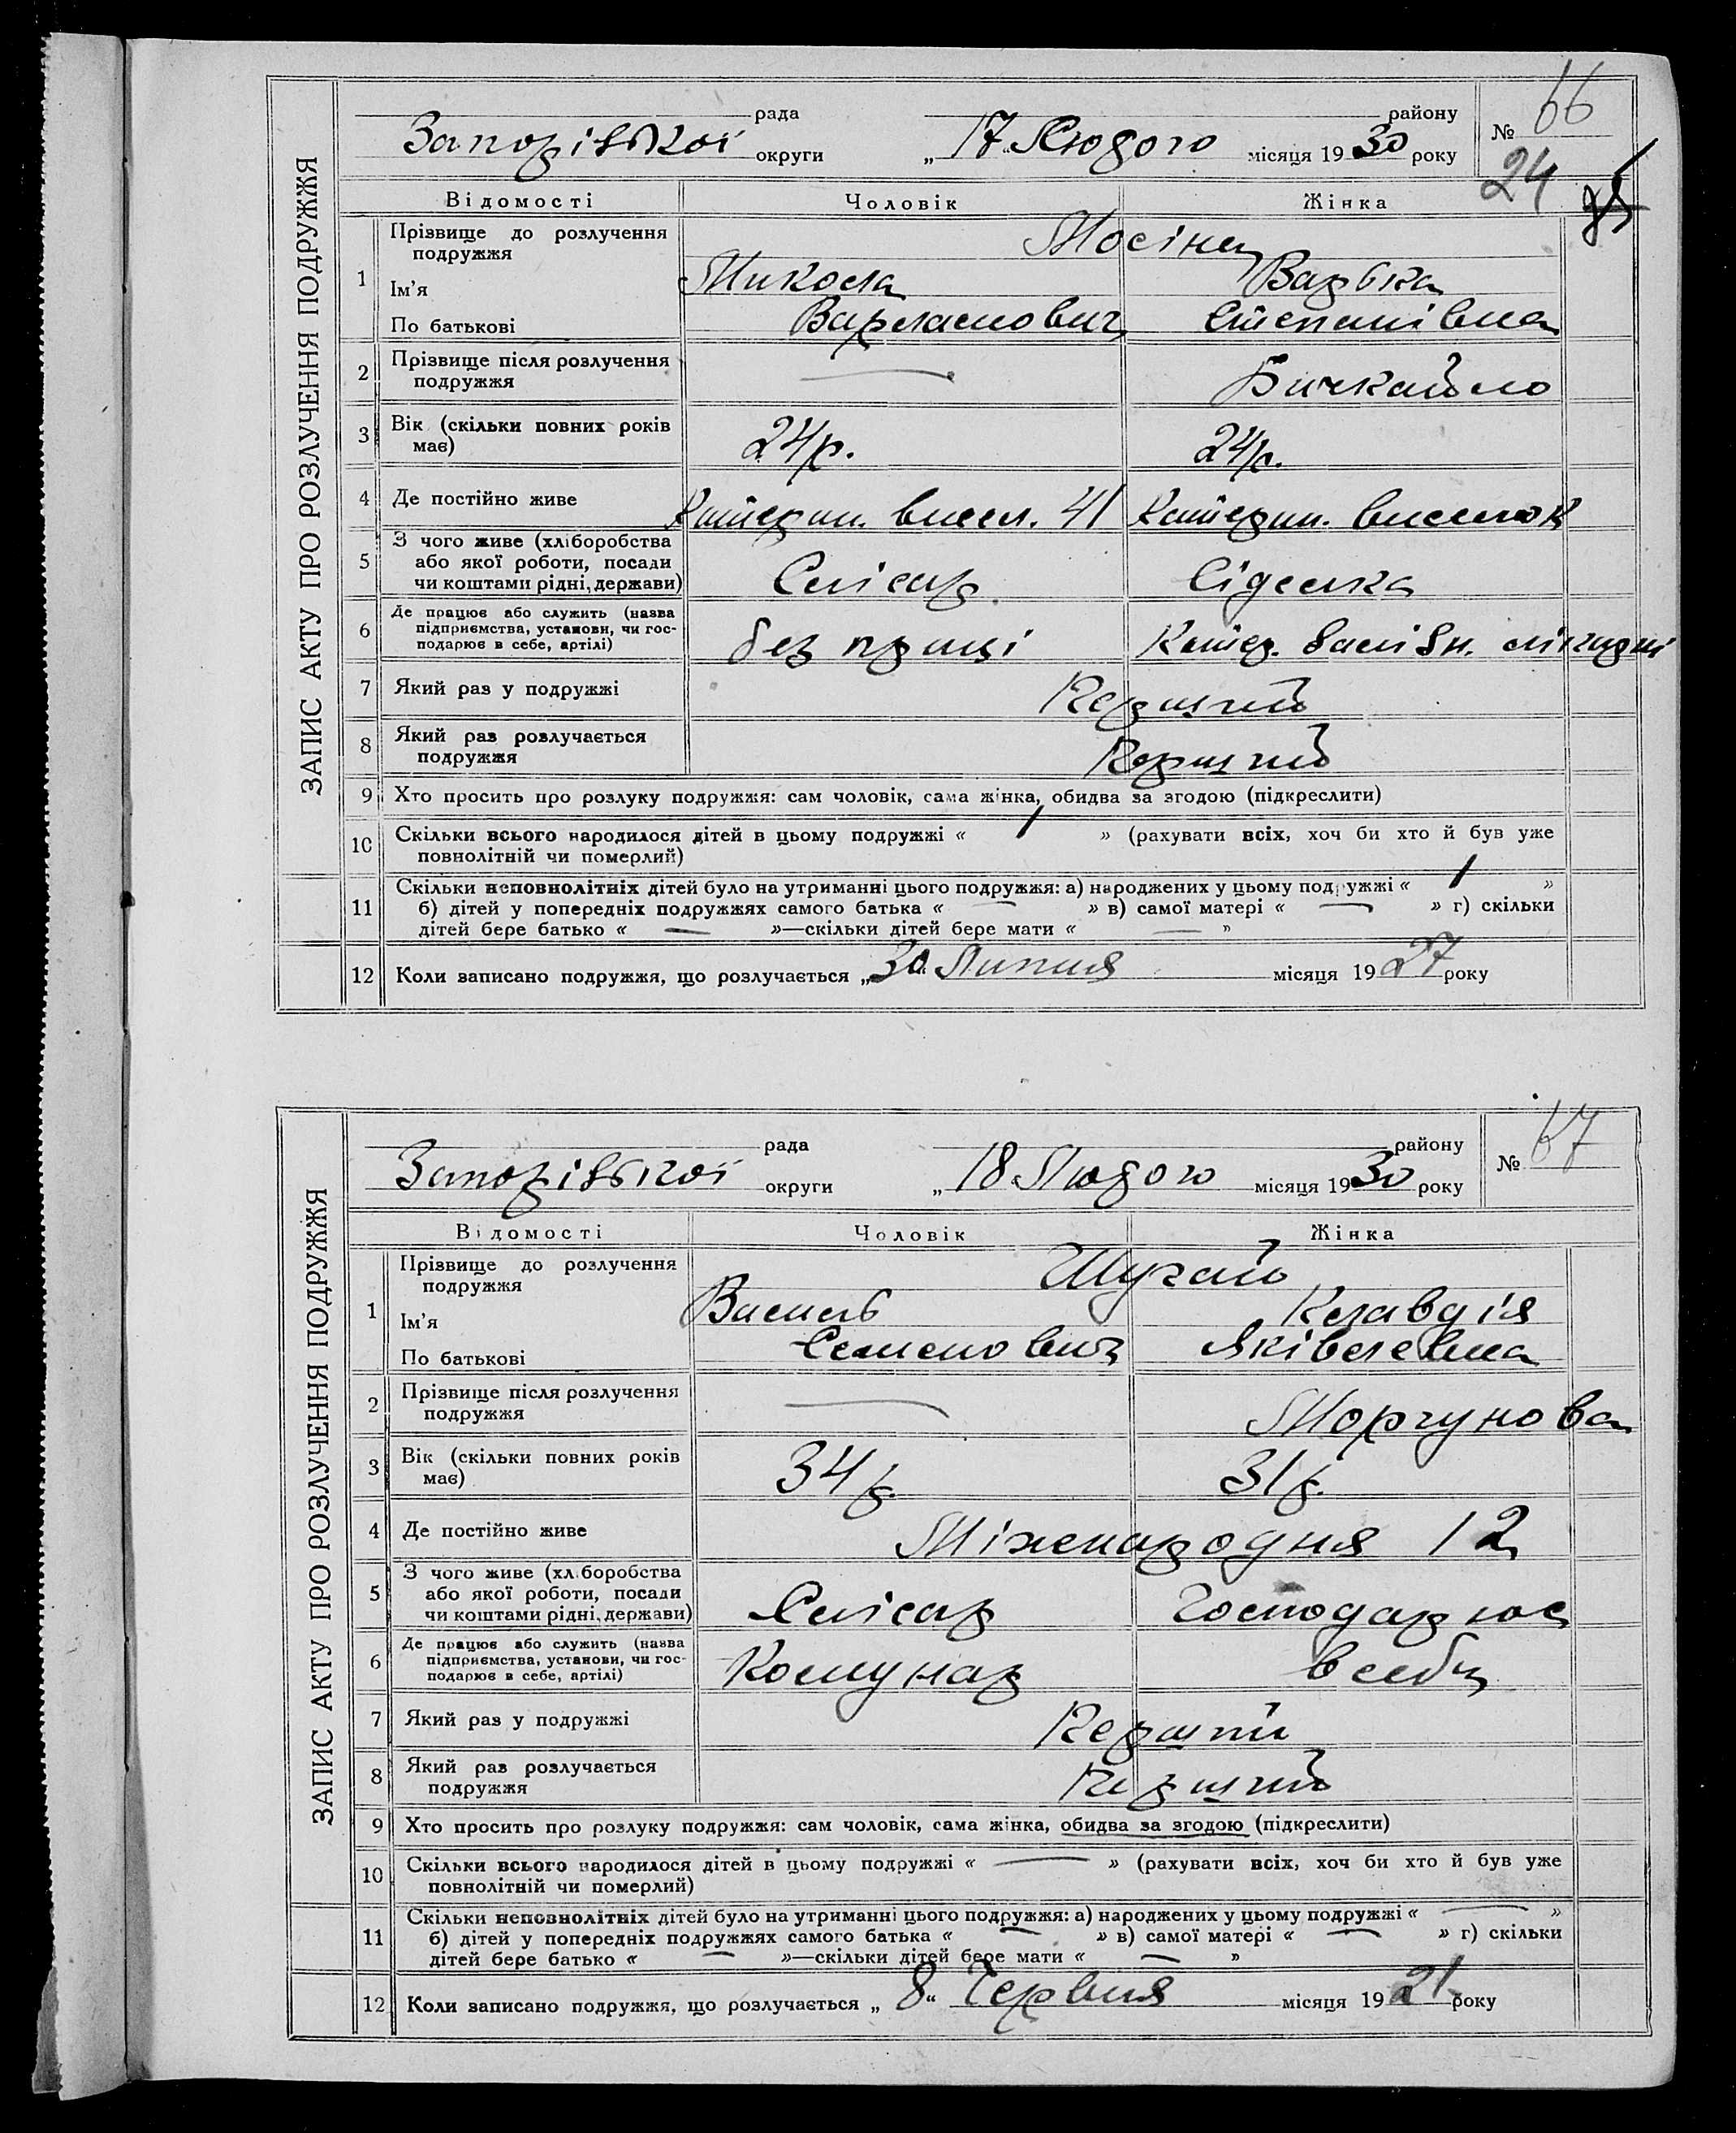 ЗАПИС АКТУ ПРО РОЗЛУЧЕННЯ ПОДРУЖЖЯ
рада району № 66
Запорізької округи „17“ Лютого місяця 1930 року
24
Відомості Чоловік Жінка
1 Прізвище до розлучення подружжя Мосінец
Ім'я Микола Варька
По батькові Варламович Степанівна
2 Прізвище після розлучення подружжя — Бичкайло
3 Вік (скільки повних років має) 24р. 24р.
4 Де постійно живе Катерин. висел. 41 Катерин. виселок
5 З чого живе (хліборобства
або якої роботи, посади
чи коштами рідні, держави) Слісар Сіделка
6 Де працює або служить (назва
підприємства, установи, чи гос-
подарює в себе, артілі) без праці Катер.
7 Який раз у подружжі Перший
8 Який раз розлучається
подружжя Перший
9 Хто просить про розлуку подружжя: сам чоловік, сама жінка, обидва за згодою (підкреслити)
10 Скільки всього народилося дітей в цьому подружжі « 1 » (рахувати всіх, хоч би хто й був уже
повнолітній чи померлий)
11 Скільки неповнолітніх дітей було на утриманні цього подружжя: а) народжених у цьому подружжі « 1 »
б) дітей у попередніх подружжях самого батька « — » в) самої матері « — » г) скільки
дітей бере батько « — »—скільки дітей бере мати « — »
12 Коли записано подружжя, що розлучається „30“ Липня місяця 1927 року
ЗАПИС АКТУ ПРО РОЗЛУЧЕННЯ ПОДРУЖЖЯ
рада району № 67
Запорізької округи „18“ Лютого місяця 1930 року
Відомості Чоловік Жінка
1 Прізвище до розлучення
подружжя Шугай
Ім'я Василь Клавдія
По батькові Семенович Яківлевна
2 Прізвище після розлучення
подружжя — Моргунова
3 Вік (скільки повних років
має) 34р. 31р.
4 Де постійно живе Міжнародня 12
5 З чого живе (хліборобства
або якої роботи, посади
чи коштами рідні, держави) Слісар Господарює
6 Де працює або служить (назва
підприємства, установи, чи гос-
подарює в себе, артілі) Комунар в себе
7 Який раз у подружжі Перший
8 Який раз розлучається
подружжя Перший
9 Хто просить про розлуку подружжя: сам чоловік, сама жінка, обидва за згодою (підкреслити)
10 Скільки всього народилося дітей в цьому подружжі « — » (рахувати всіх, хоч би хто й був уже
повнолітній чи померлий)
11 Скільки неповнолітніх дітей було на утриманні цього подружжя: а) народжених у цьому подружжі « — »
б) дітей у попередніх подружжях самого батька « — » в) самої матері « — » г) скільки
дітей бере батько « — »—скільки дітей бере мати « — »
12 Коли записано подружжя, що розлучається „8“ Червня місяця 1921 року